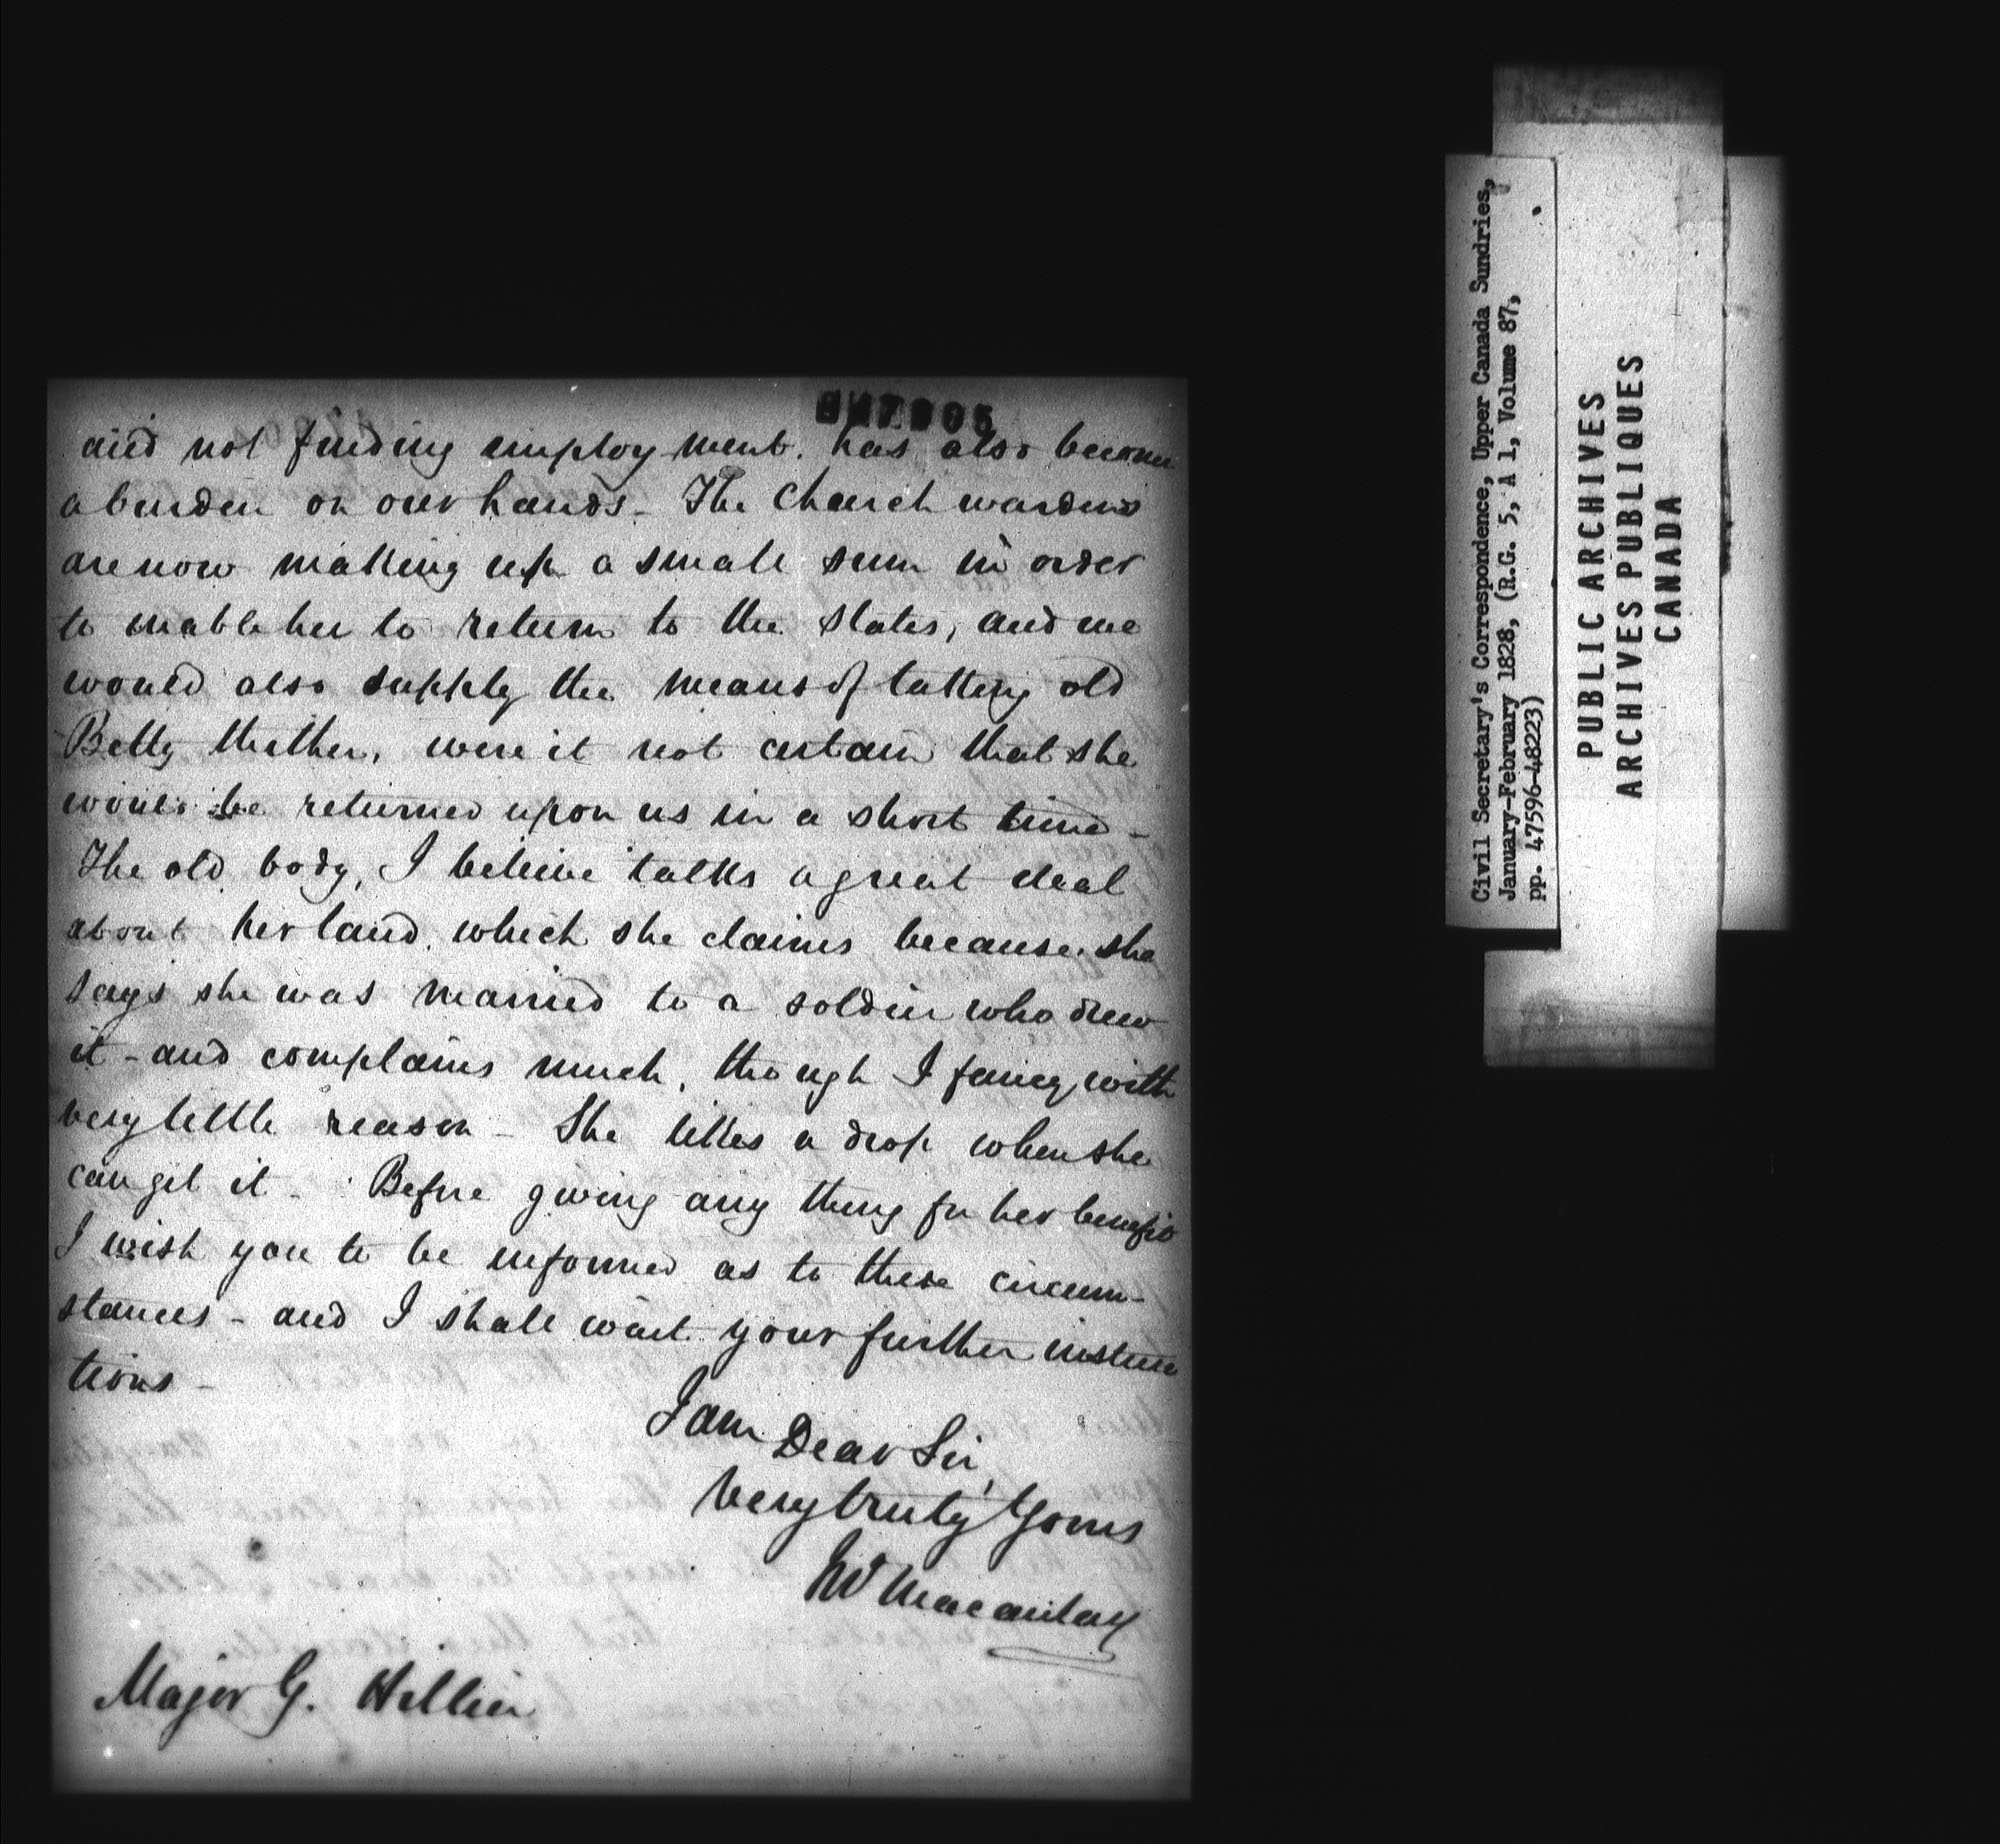 and not finding employment. has also become
a burden on our hands - The Church wardens
are now making up a small sum in order
to enable her to return to the States, and we
would also supply the means of taking old
Betty thither, were it not certain that she
would be returned upon us in a short time -
The old body, I believe talks a great deal
about her land, which she claims because she
says she was married to a soldier who drew
it - and complains much, though I fancy with
very little reason - She likes a drop when she
can get it - Before giving any thing for her benefit
I wish you to be informed as to these circum-
stances - and I shall wait your further instruc
tions -
I am Dear Sir,
Very truly Yours
Macaulay
Major G. Hillier
Civil Secretary's Correspondence, Upper Canada Sundries,
January-February 1828, (R.G. 5, A 1, Volume 87,
pp. 47596-48223)
PUBLIC ARCHIVES
ARCHIVES PUBLIQUES
CANADA